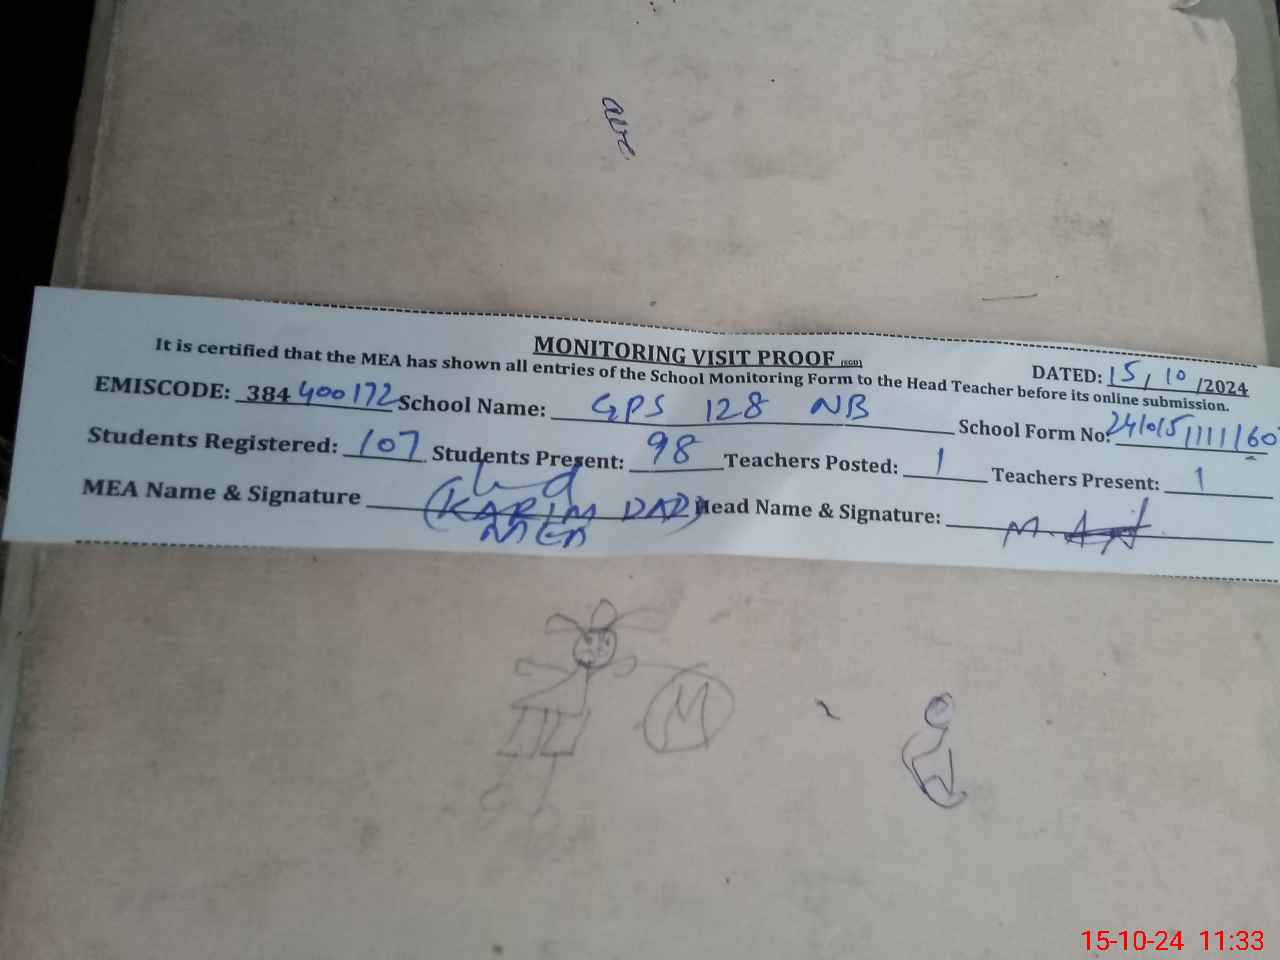 ave
MONITORING VISIT PROOF (SGD)
It is certified that the MEA has shown all entries of the School Monitoring Form to the Head Teacher before its online submission.
DATED: 15 / 10 /2024
EMISCODE: 384 400172 School Name: GPS 128 NB School Form No: 241015111160
Students Registered: 107 Students Present: 98 Teachers Posted: 1 Teachers Present: 1
MEA Name & Signature (KARIM DAD) Head Name & Signature:
MEA
M
15-10-24 11:33